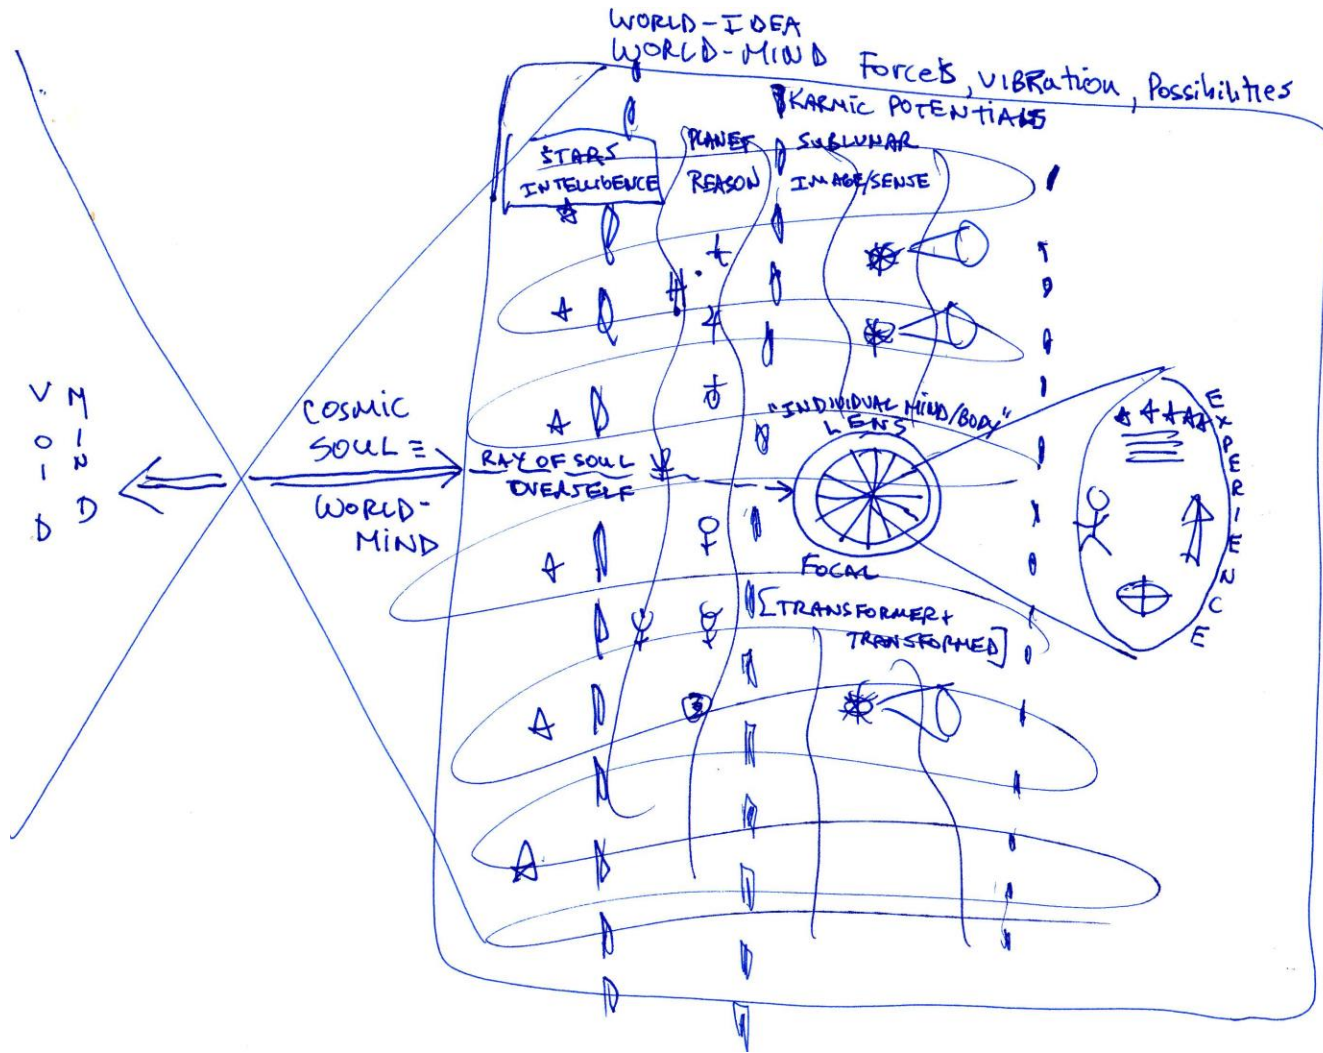 WORLD-IDEA
WORLD-MIND
Forces, VIBRation, Possibilities
KARMIC POTENTIALS
STARS
INTELLIGENCE
PLANET
REASON
SUBLUNAR
IMAGE/SENSE
VOID
MIND
COSMIC
SOUL =
WORLD-
MIND
RAY OF SOUL
OVERSELF
"INDIVIDUAL MIND/BODY"
LENS
FOCAL
[TRANSFORMER+
TRANSFORMED]
EXPERIENCE